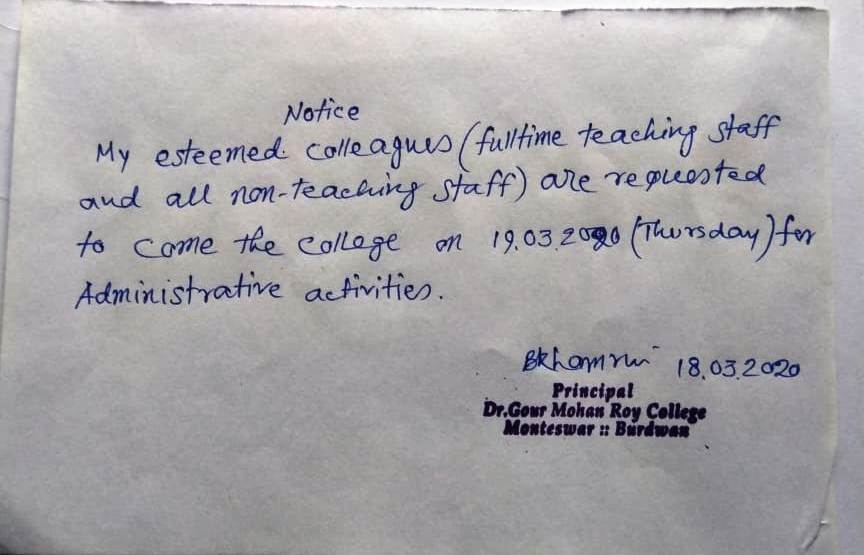 Notice
My esteemed colleagues (fulltime teaching staff
and all non-teaching staff) are requested
to come the college on 19.03.2020 (Thursday) for
Administrative activities.
18.03.2020
Principal
Dr.Gour Mohan Roy College
Monteswar :: Burdwan